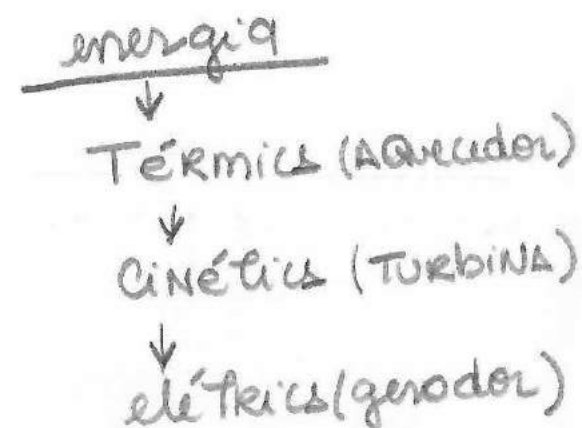 energia
↓
Térmica (AQuecedor)
↓
CiNética (TURbiNA)
↓
elétrica (gerador)